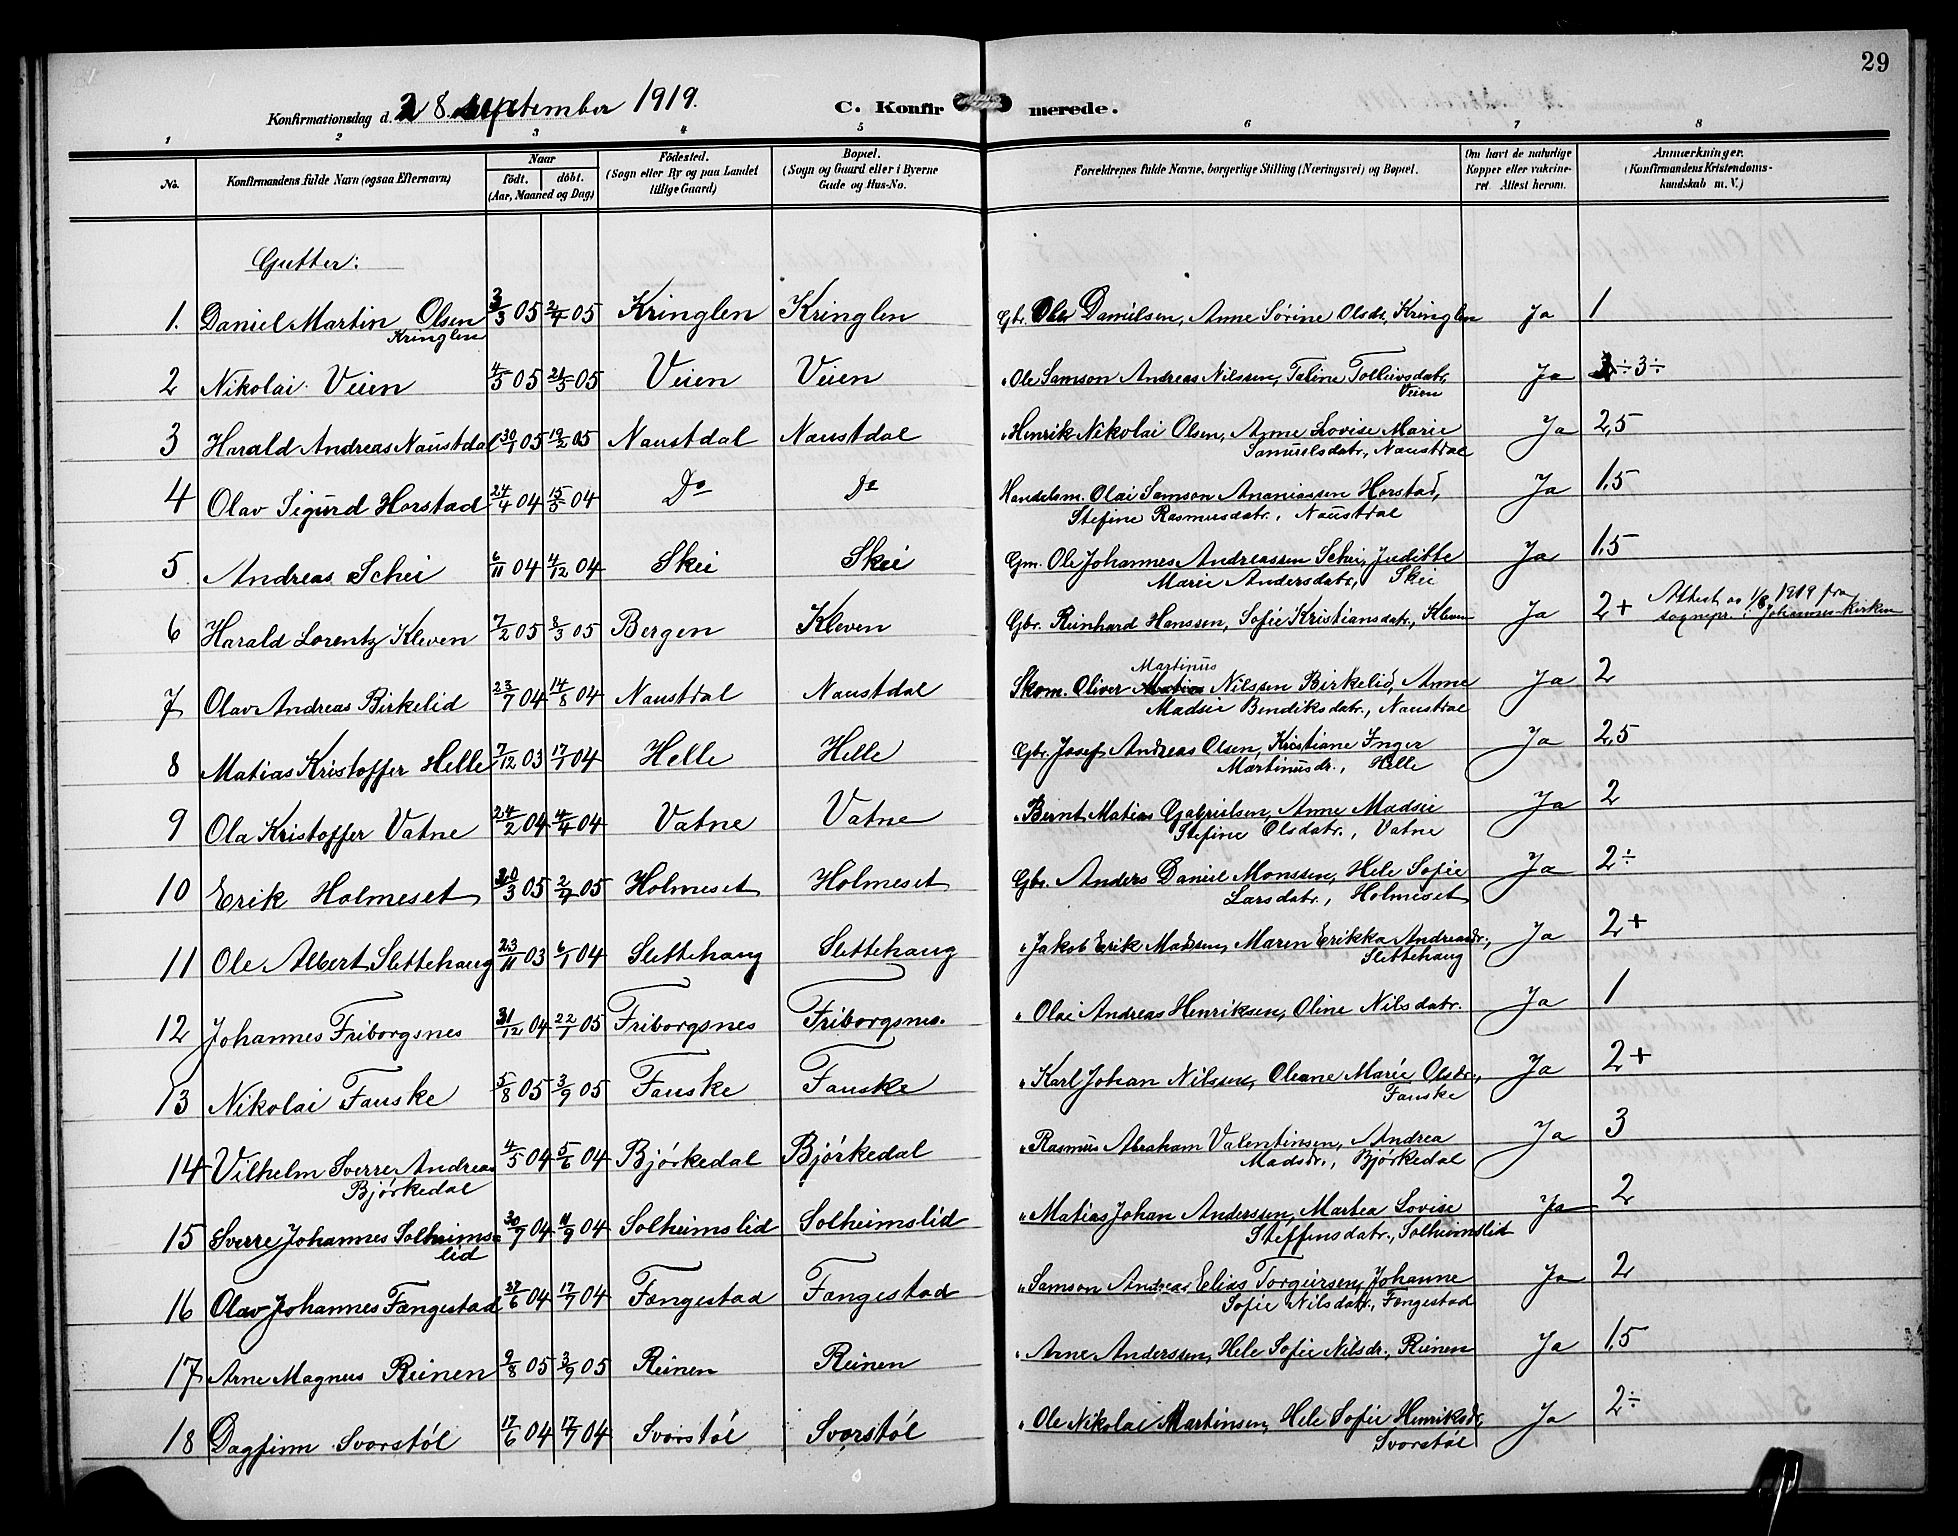 29
Konfirmationsdag d. 28. september 1919.
C. Konfirmerede.
1 2 3 4 5 6 7 8
No. Konfirmandens fulde Navn (ogsaa Efternavn) Naar født. døbt. (Aar, Maaned og Dag) Fødested. (Sogn eller By og paa Landet tillige Gaard) Bopæl. (Sogn og Gaard eller i Byerne Gade og Hus-No. Forældrenes fulde Navne, borgerlige Stilling (Næringsvei) og Bopæl. Om havt de naturlige Kopper eller vakcineret Attest herom. Anmærkninger. (Konfirmandens Kristendomskundskab m. V.)
Gutter:
1. Daniel Martin Olsen Kringlen 3/3 05 2/4 05 Kringlen Kringlen Gbr. Ole Danielsen, Anne Sørine Olsdr., Kringlen Ja 1
2 Nikolai Veien 4/5 05 21/5 05 Veien Veien " Ole Samson Andreas Nilssen, Taline Tolleivsdatr., Veien Ja 3÷
3 Harald Andreas Naustdal 30/1 05 19/2 05 Naustdal Naustdal " Henrik Nikolai Olsen, Anne Lovise Marie Samuelsdatr., Naustdal Ja 2,5
4 Olav Sigurd Horstad 24/4 04 15/5 04 Do Do Handelsm. Olai Samson Ananiassen Horstad, Stefine Rasmusdatr., Naustdal Ja 1,5
5 Andreas Schei 6/11 04 4/12 04 Skei Skei Gm. Ole Johannes Andreassen Schei, Juditte Marie Andersdatr., Skei Ja 1,5
6 Harald Lorentz Kleven 7/2 05 8/3 05 Bergen Kleven Gbr. Reinhard Hanssen, Sofie Kristiansdatr., Kleven Ja 2+ Attest av 1/8 1919 fra sognepr. i Johannes-kirken
7 Olav Andreas Birkelid 23/7 04 14/8 04 Naustdal Naustdal Skom. Oliver Martinus Nilssen Birkelid, Anne Madsie Bendiksdatr., Naustdal Ja 2
8 Matias Kristoffer Helle 7/12 03 17/1 04 Helle Helle Gbr. Josef Andreas Olsen, Kristiane Inger Martinusdr., Helle Ja 2,5
9 Ola Kristoffer Vatne 24/2 04 4/4 04 Vatne Vatne " Bernt Matias Gabrielsen, Anne Madsie Stefine Olsdatr., Vatne Ja 2
10 Erik Holmeset 20/3 05 2/4 05 Holmeset Holmeset Gbr. Anders Daniel Monssen, Hele Sofie Larsdatr., Holmeset Ja 2÷
11 Ole Albert Slettehaug 23/11 03 6/1 04 Slettehaug Slettehaug " Jakob Erik Madsen, Maren Erikka Andreasdr., Slettehaug Ja 2+
12 Johannes Friborgsnes 31/12 04 22/1 05 Friborgsnes Friborgsnes. " Olai Andreas Henriksen, Oline Nilsdatr. Ja 1
13 Nikolai Fauske 5/8 05 3/9 05 Fauske Fauske " Karl Johan Nilssen, Oleane Marie Olsdr., Fauske Ja 2+
14 Vilhelm Sverre Andreas Bjørkedal 4/5 04 5/6 04 Bjørkedal Bjørkedal " Rasmus Abraham Valentinsen, Andrea Madsdr., Bjørkedal Ja 3
15 Sverre Johannes Solheimslid 30/7 04 11/9 04 Solheimslid Solheimslid " Matias Johan Anderssen, Martea Lovise Steffensdatr., Solheimslid Ja 2
16 Olav Johannes Fangestad 27/6 04 17/7 04 Fangestad Fangestad " Samson Andreas Elias Torgeirsen, Johanne Sofie Nilsdatr., Fangestad Ja 2
17 Arne Magnus Reinen 9/8 05 3/9 05 Reinen Reinen " Arne Anderssen, Hele Sofie Nilsdr., Reinen Ja 1,5
18 Dagfinn Svorstøl 17/6 04 17/7 04 Svorstøl Svorstøl " Ole Nikolai Martinsen, Hele Sofie Henriksdr., Svorstøl Ja 2÷